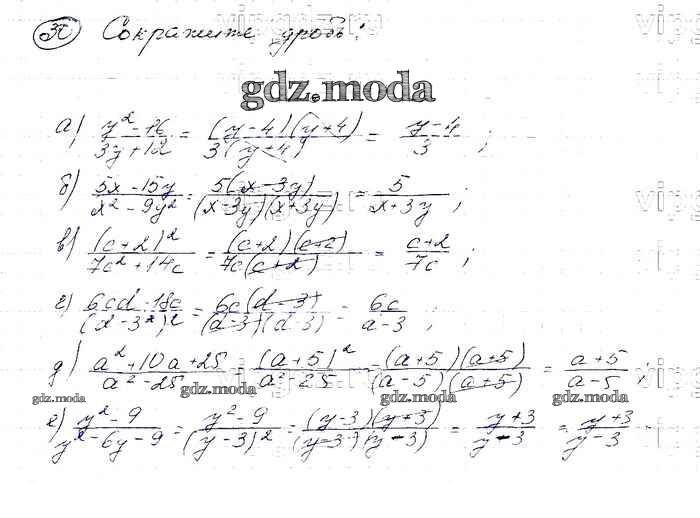 30 Сократите дробь:
gdz.moda
а) (y² - 16)/(3y + 12) = ((y - 4)(y + 4))/(3(y + 4)) = (y - 4)/3 ;
б) (5x - 15y)/(x² - 9y²) = (5(x - 3y))/((x - 3y)(x + 3y)) = 5/(x + 3y) ;
в) (c + 2)²/(7c² + 14c) = ((c + 2)(c + 2))/(7c(c + 2)) = (c + 2)/(7c) ;
г) (6cd - 18c)/(d - 3)² = (6c(d - 3))/((d - 3)(d - 3)) = 6c/(d - 3) ;
д) (a² + 10a + 25)/(a² - 25) = (a + 5)²/(a² - 25) = ((a + 5)(a + 5))/((a - 5)(a + 5)) = (a + 5)/(a - 5) ;
gdz.moda gdz.moda gdz.moda gdz.moda
е) (y² - 9)/(y² - 6y - 9) = (y² - 9)/(y - 3)² = ((y - 3)(y + 3))/((y - 3)(y - 3)) = (y + 3)/(y - 3) = (y + 3)/(y - 3)